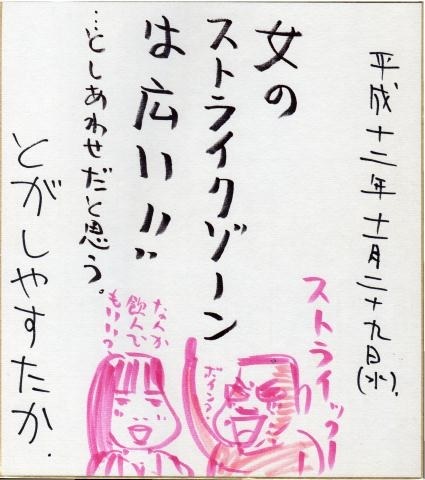 平成十二年十一月二十九日(水).
女の
ストライクゾーン
は広い!!
…としあわせだと思う。
とがしやすたか.
ストライックー
なんか
飲んで
もいい?